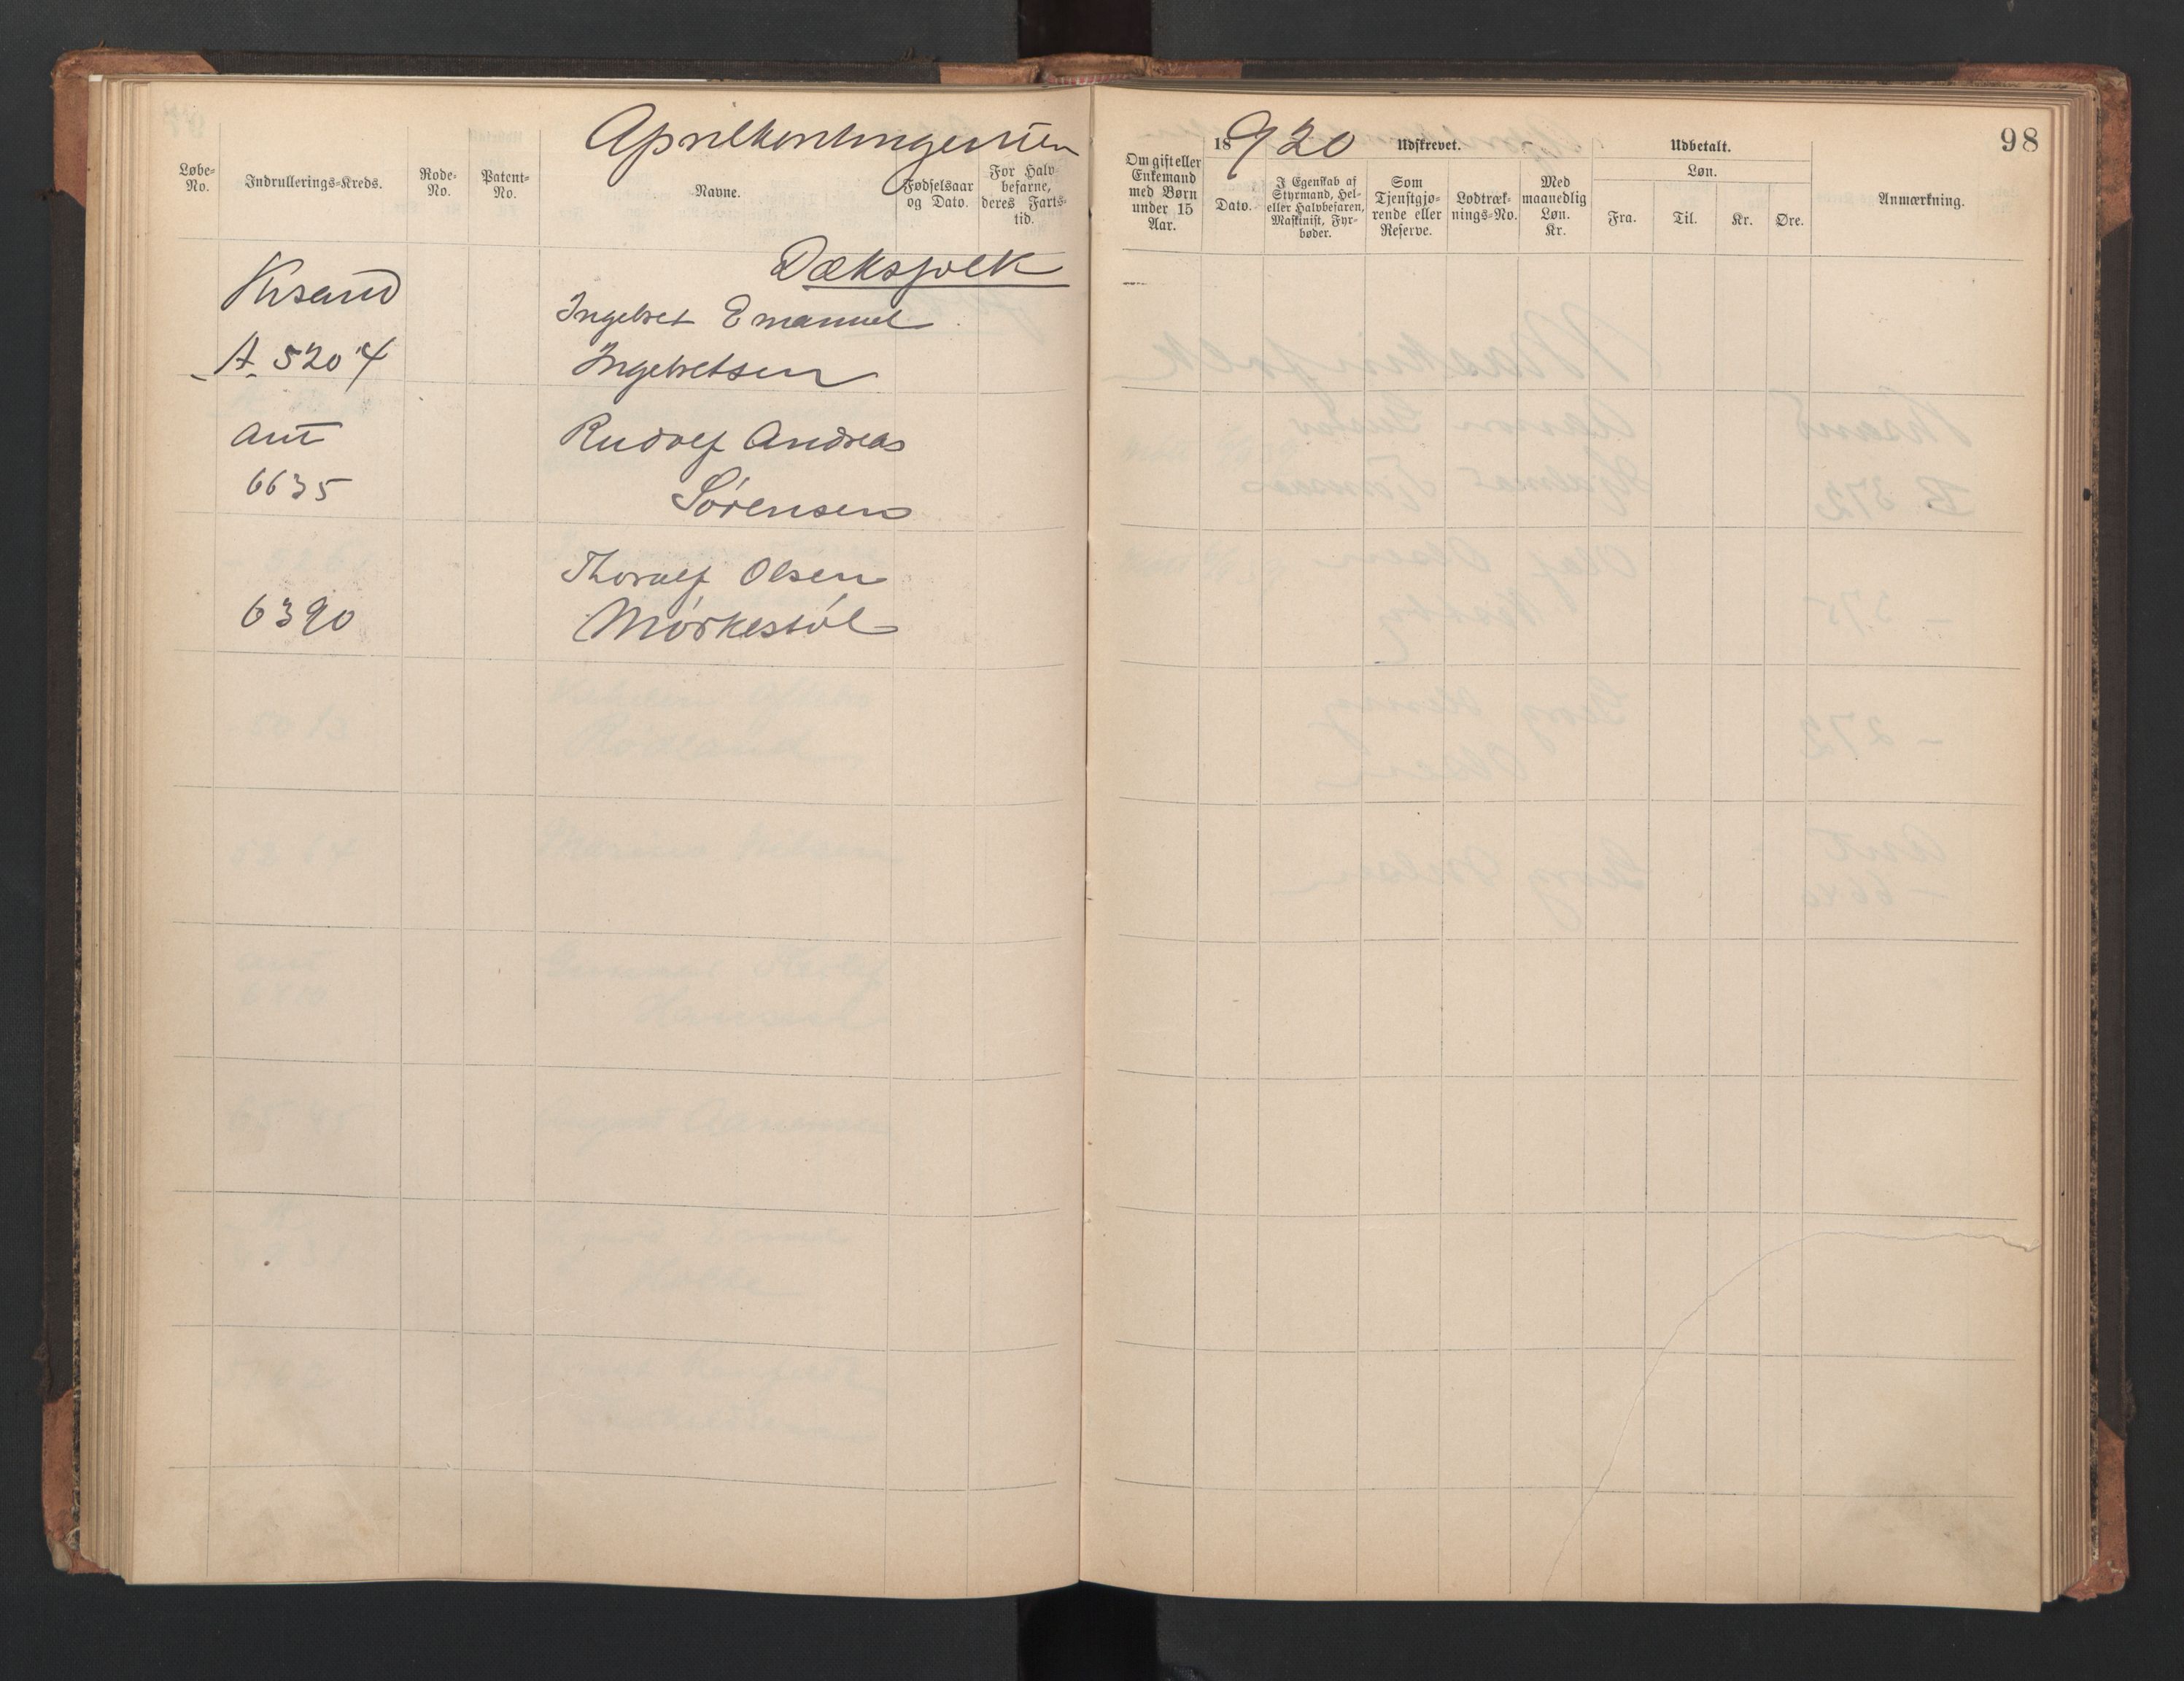 Aprilkontingenten
1920
98
Løbe-No.
Indrullerings-Kreds.
Rode-No.
Patent-No.
Navne.
Fødselsaar og Dato.
For Halvbefarne, deres Fartstid.
Om gift eller Enkemand med Børn under 15 Aar.
18
Udskrevet.
Dato.
I Egenskab af Styrmand, Hel- eller Halvbefaren, Maskinist, Fyrbøder.
Som Tjenstgjørende eller Reserve.
Lodtræknings-No.
Med maanedlig Løn. Kr.
Udbetalt.
Løn.
Fra.
Til.
Kr.
Øre.
Anmærkning.
Dæksfolk
Krsand
Ingebret Emanuel
A. 5204
Ingebretsen
Ant
Rudolf Andreas
6635
Sørensen
Thoralf Olsen
6390
Mørkestøl